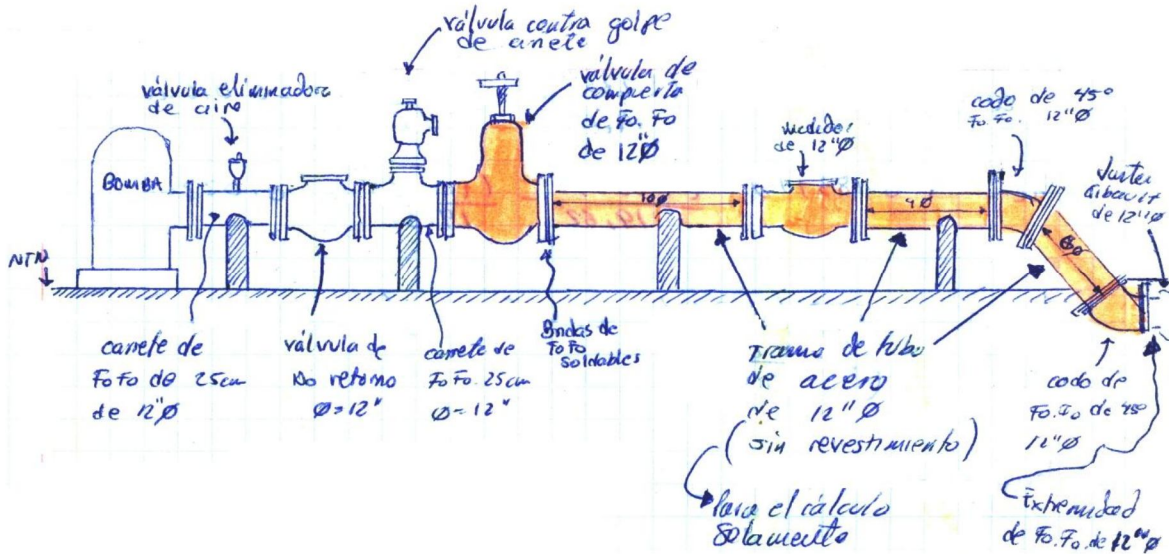 válvula contra golpe
de ariete
válvula eliminadora
de aire
válvula de
compuerta
de Fo. Fo
de 12"Ø
medidor
de 12"Ø
codo de 45°
Fo. Fo. 12"Ø
Junta
Gibault
de 12"Ø
BOMBA
10Ø
4Ø
6Ø
NTN
carrete de
FoFo de 25cm
de 12"Ø
válvula de
No retorno
Ø=12"
carrete de
FoFo. 25cm
Ø=12"
Bridas de
FoFo
Soldables
Tramo de tubo
de acero
de 12"Ø
(sin revestimiento)
Para el cálculo
Solamente
codo de
Fo.Fo de 45°
12"Ø
Extremidad
de Fo.Fo. de 12"Ø